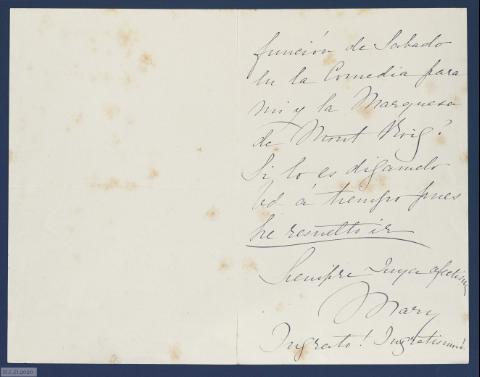 función de Sabado
en la Comedia para
mi y la Marquesa
de Mont Roig?
Si lo es digamelo
Vd á tiempo pues
he resuelto ir
Siempre suya afectisima
Mary
Ingrato! Ingratisimo!